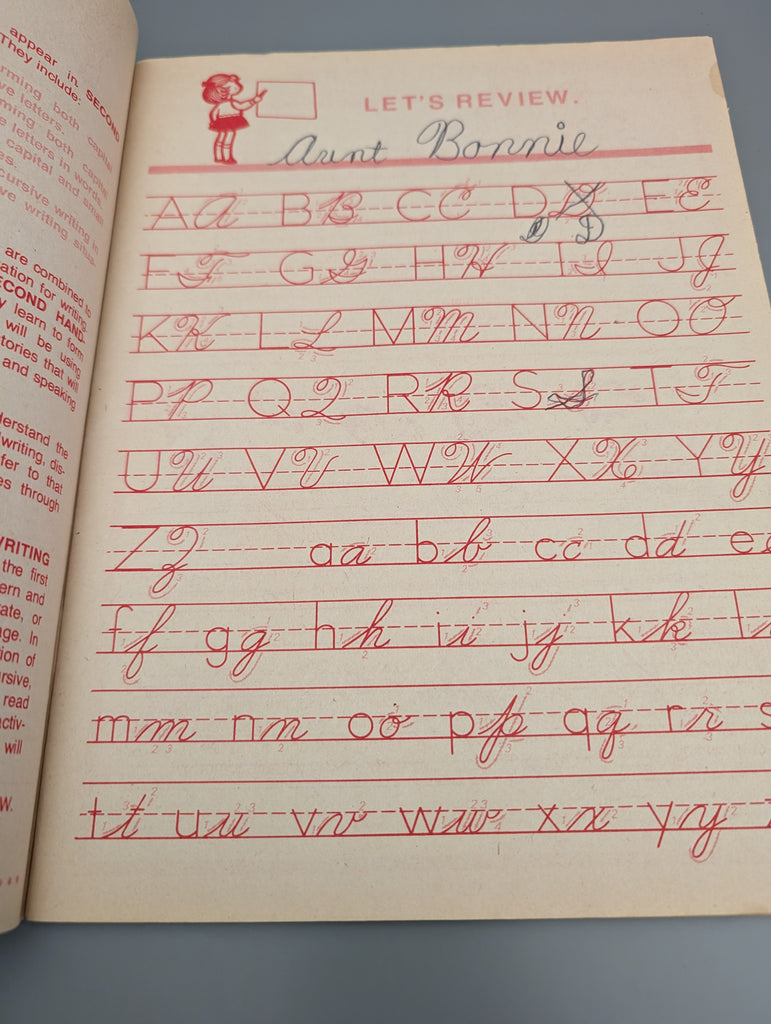 appear in SECOND
They include:
capital
letters.
both capital
letters in words.
capital and small
cursive writing in
writing
are combined to
for writing.
SECOND HAND-
learn to form
will be using
stories that will
and speaking
understand the
writing, dis-
refer to that
through
WRITING
the first
and
or
In
of
read
will
LET'S REVIEW.
Aunt Bonnie
A A B B C C D D E E
D D
F F G G H H I I J J
K K L L M M N N O O
P P Q Q R R S S T T
U U V V W W X X Y Y
Z Z a a b b c c d d e
f f g g h h i i j j k k l
m m n n o o p p q q r r s
t t u u v v w w x x y y